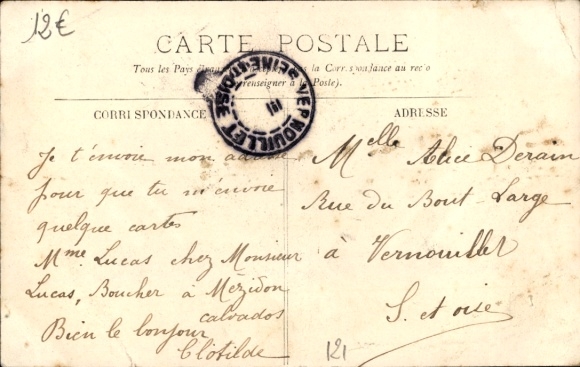 12€
CARTE POSTALE
Tous les Pays la Correspondance au recto
renseigner à la Poste).
CORRISPONDANCE
ADRESSE
VERNOUILLET SEINE-ET-OISE
Je t'envoie mon adresse
pour que tu m'envoie
quelque cartes
Mme Lucas chez Monsieur
Lucas, Boucher à Mézidon
calvados
Bien le bonjour
Clotilde
Melle Alice Derain
Rue du Bout-Large
à Vernouillet
S. et oise
121